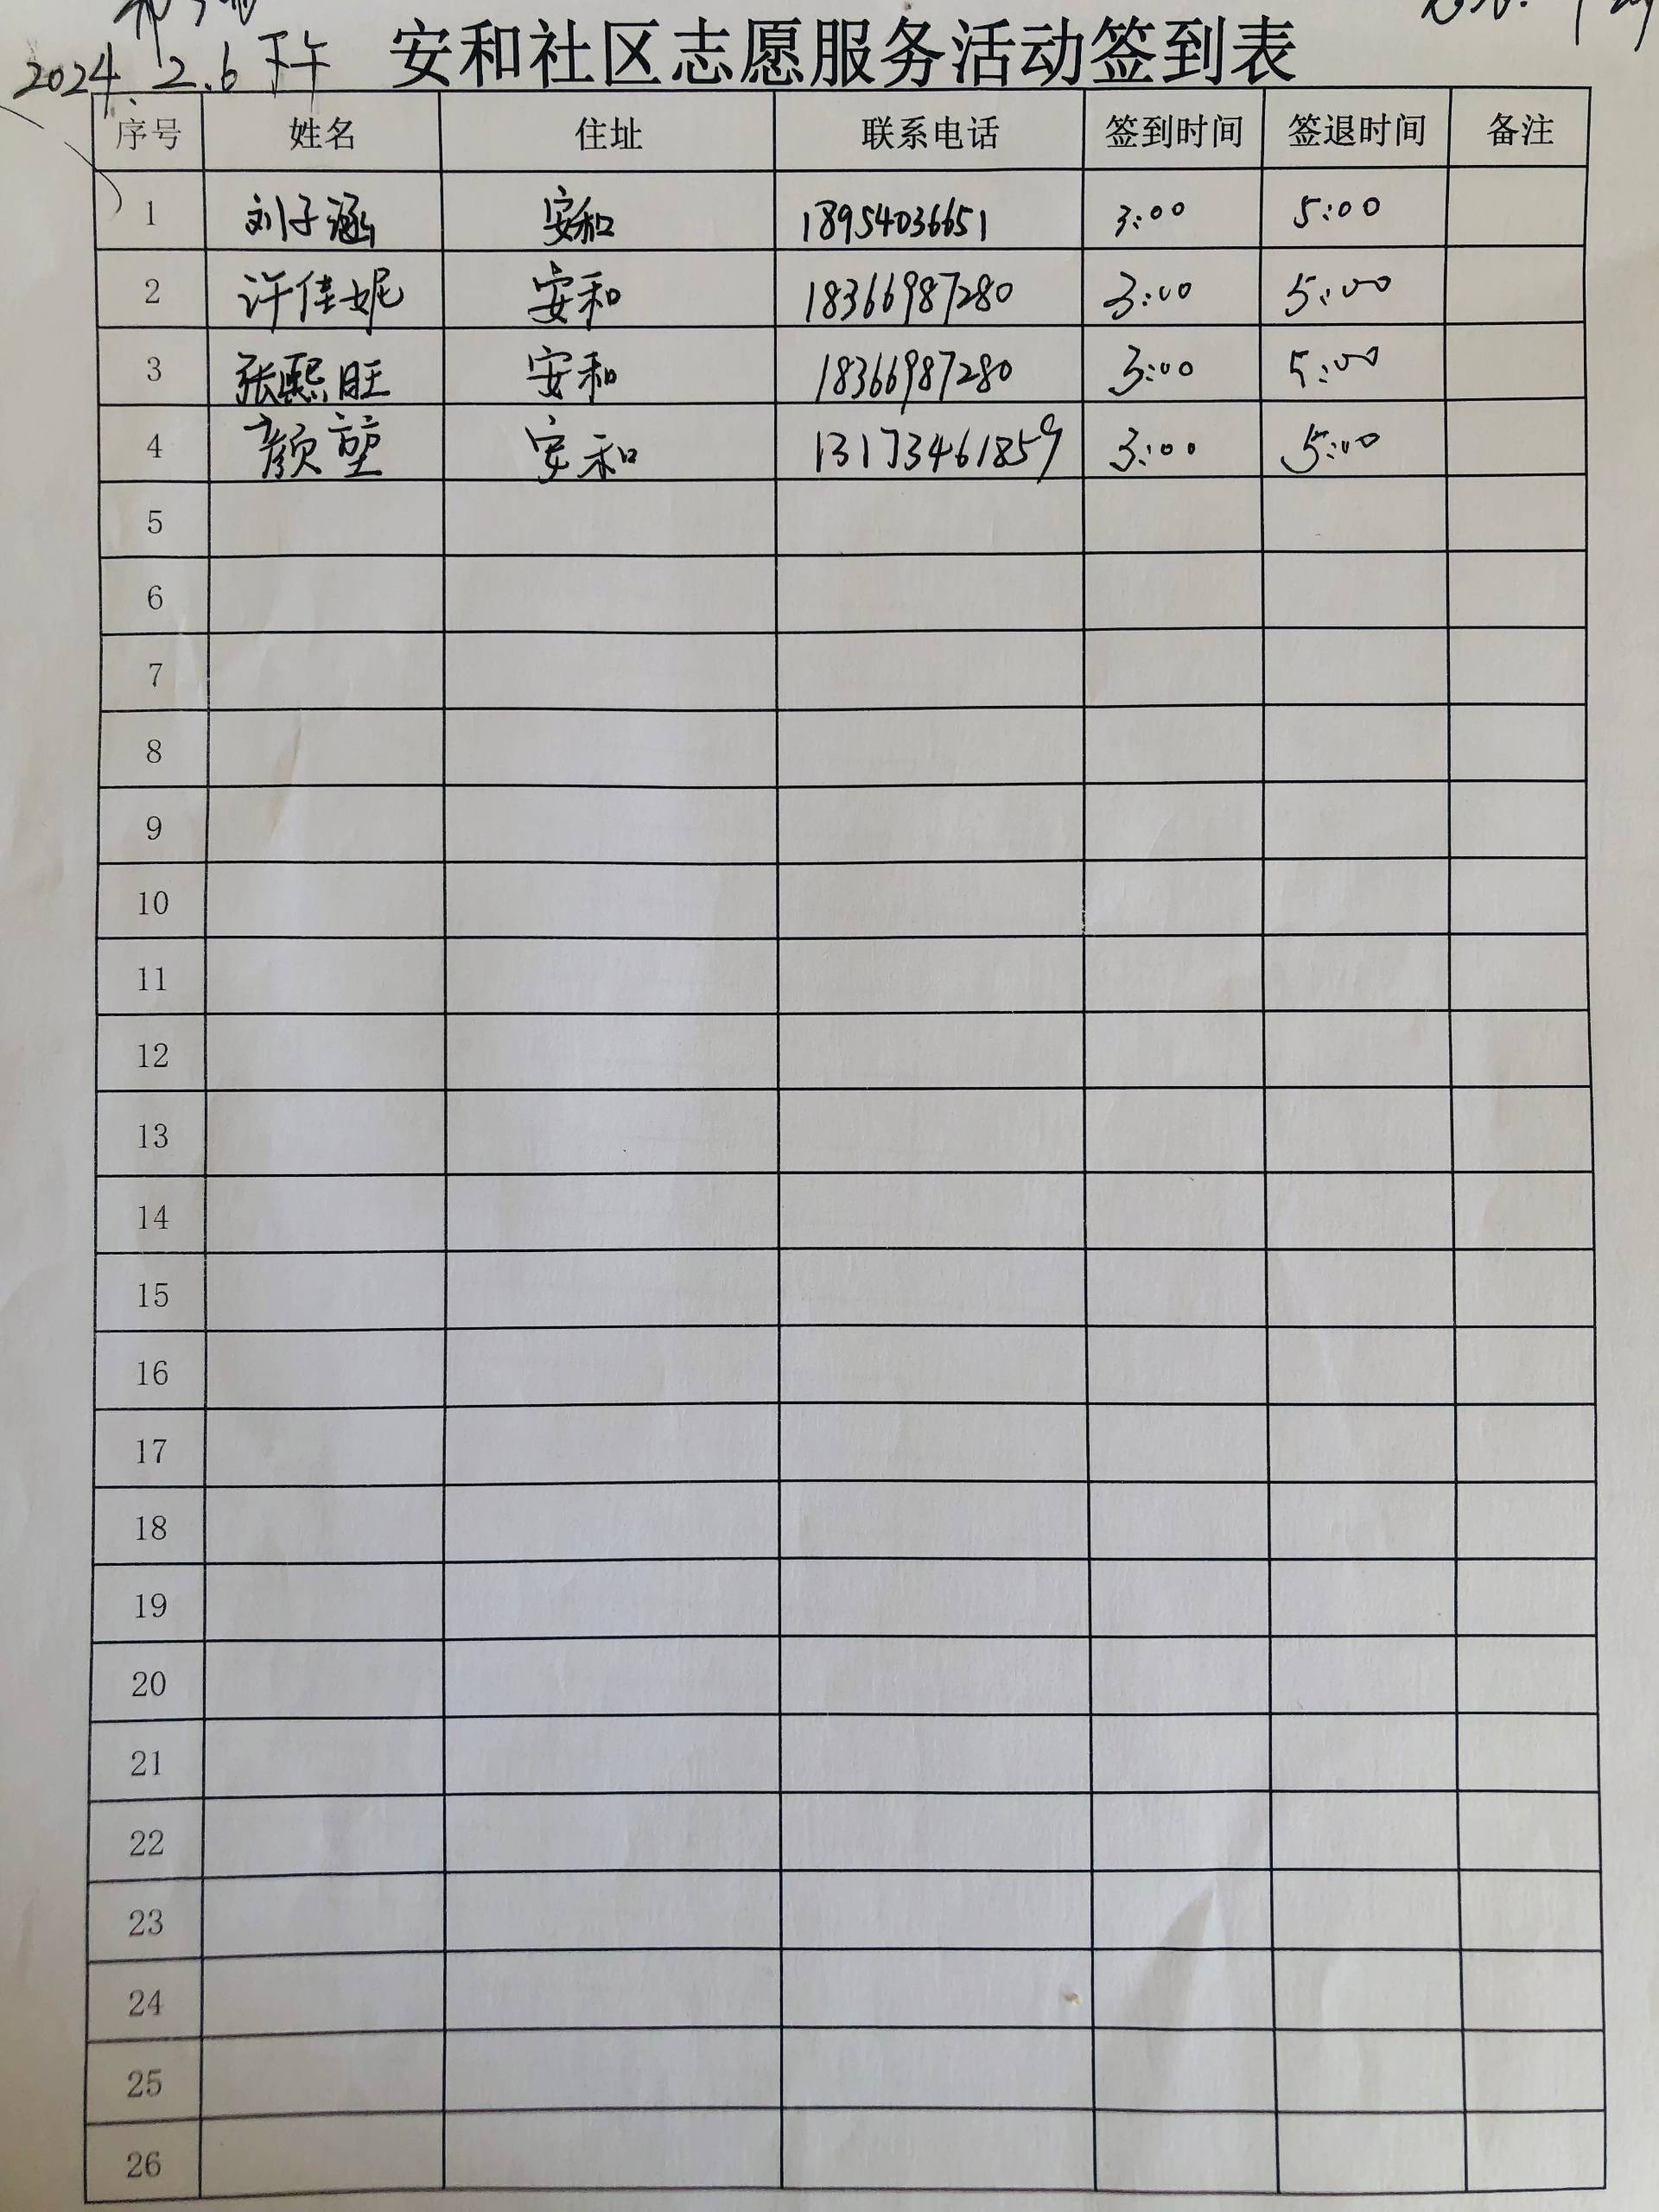 2024.2.6下午 安和社区志愿服务活动签到表
序号 姓名 住址 联系电话 签到时间 签退时间 备注
1 刘子涵 安和 18954036651 3:00 5:00
2 许佳妮 安和 18366987280 3:00 5:00
3 张熙旺 安和 18366987280 3:00 5:00
4 颜堃 安和 13173461859 3:00 5:00
5
6
7
8
9
10
11
12
13
14
15
16
17
18
19
20
21
22
23
24
25
26